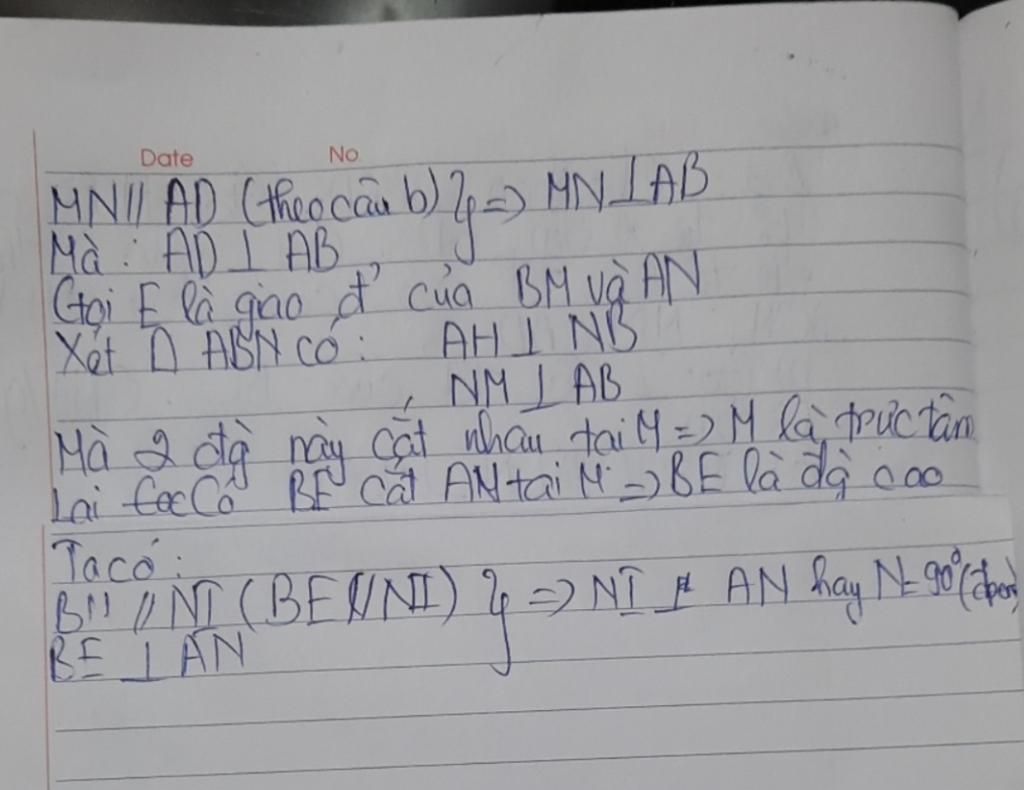 Date No
MN // AD (theo câu b) } => MN ⊥ AB
Mà : AD ⊥ AB
Gọi E là giao đ' của BM và AN
Xét Δ ABN có: AH ⊥ NB
, NM ⊥ AB
Mà 2 đg̀ này cắt nhau tại M => M là trực tâm
Lại có BE cắt AN tại M => BE là đg̀ cao
Ta có:
BM // NI (BE // NI) } => NI ⊥ AN hay N = 90° (đpcm)
BE ⊥ AN